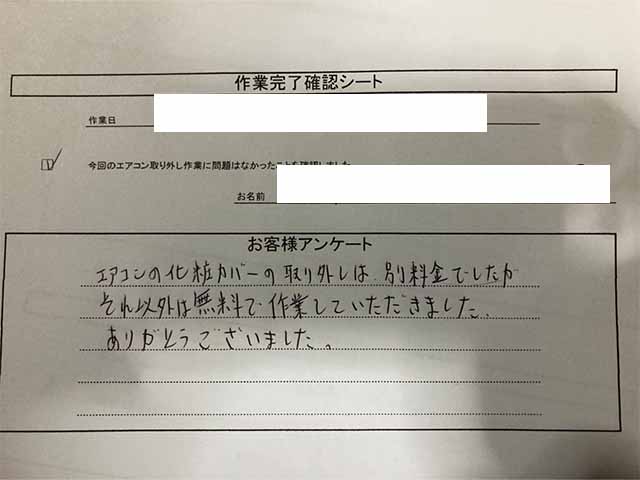 作業完了確認シート
作業日
今回のエアコン取り外し作業に問題はなかったことを確認しました
お名前
お客様アンケート
エアコンの化粧カバーの取り外しは、別料金でしたが
それ以外は無料で作業していただきました。
ありがとうございました。